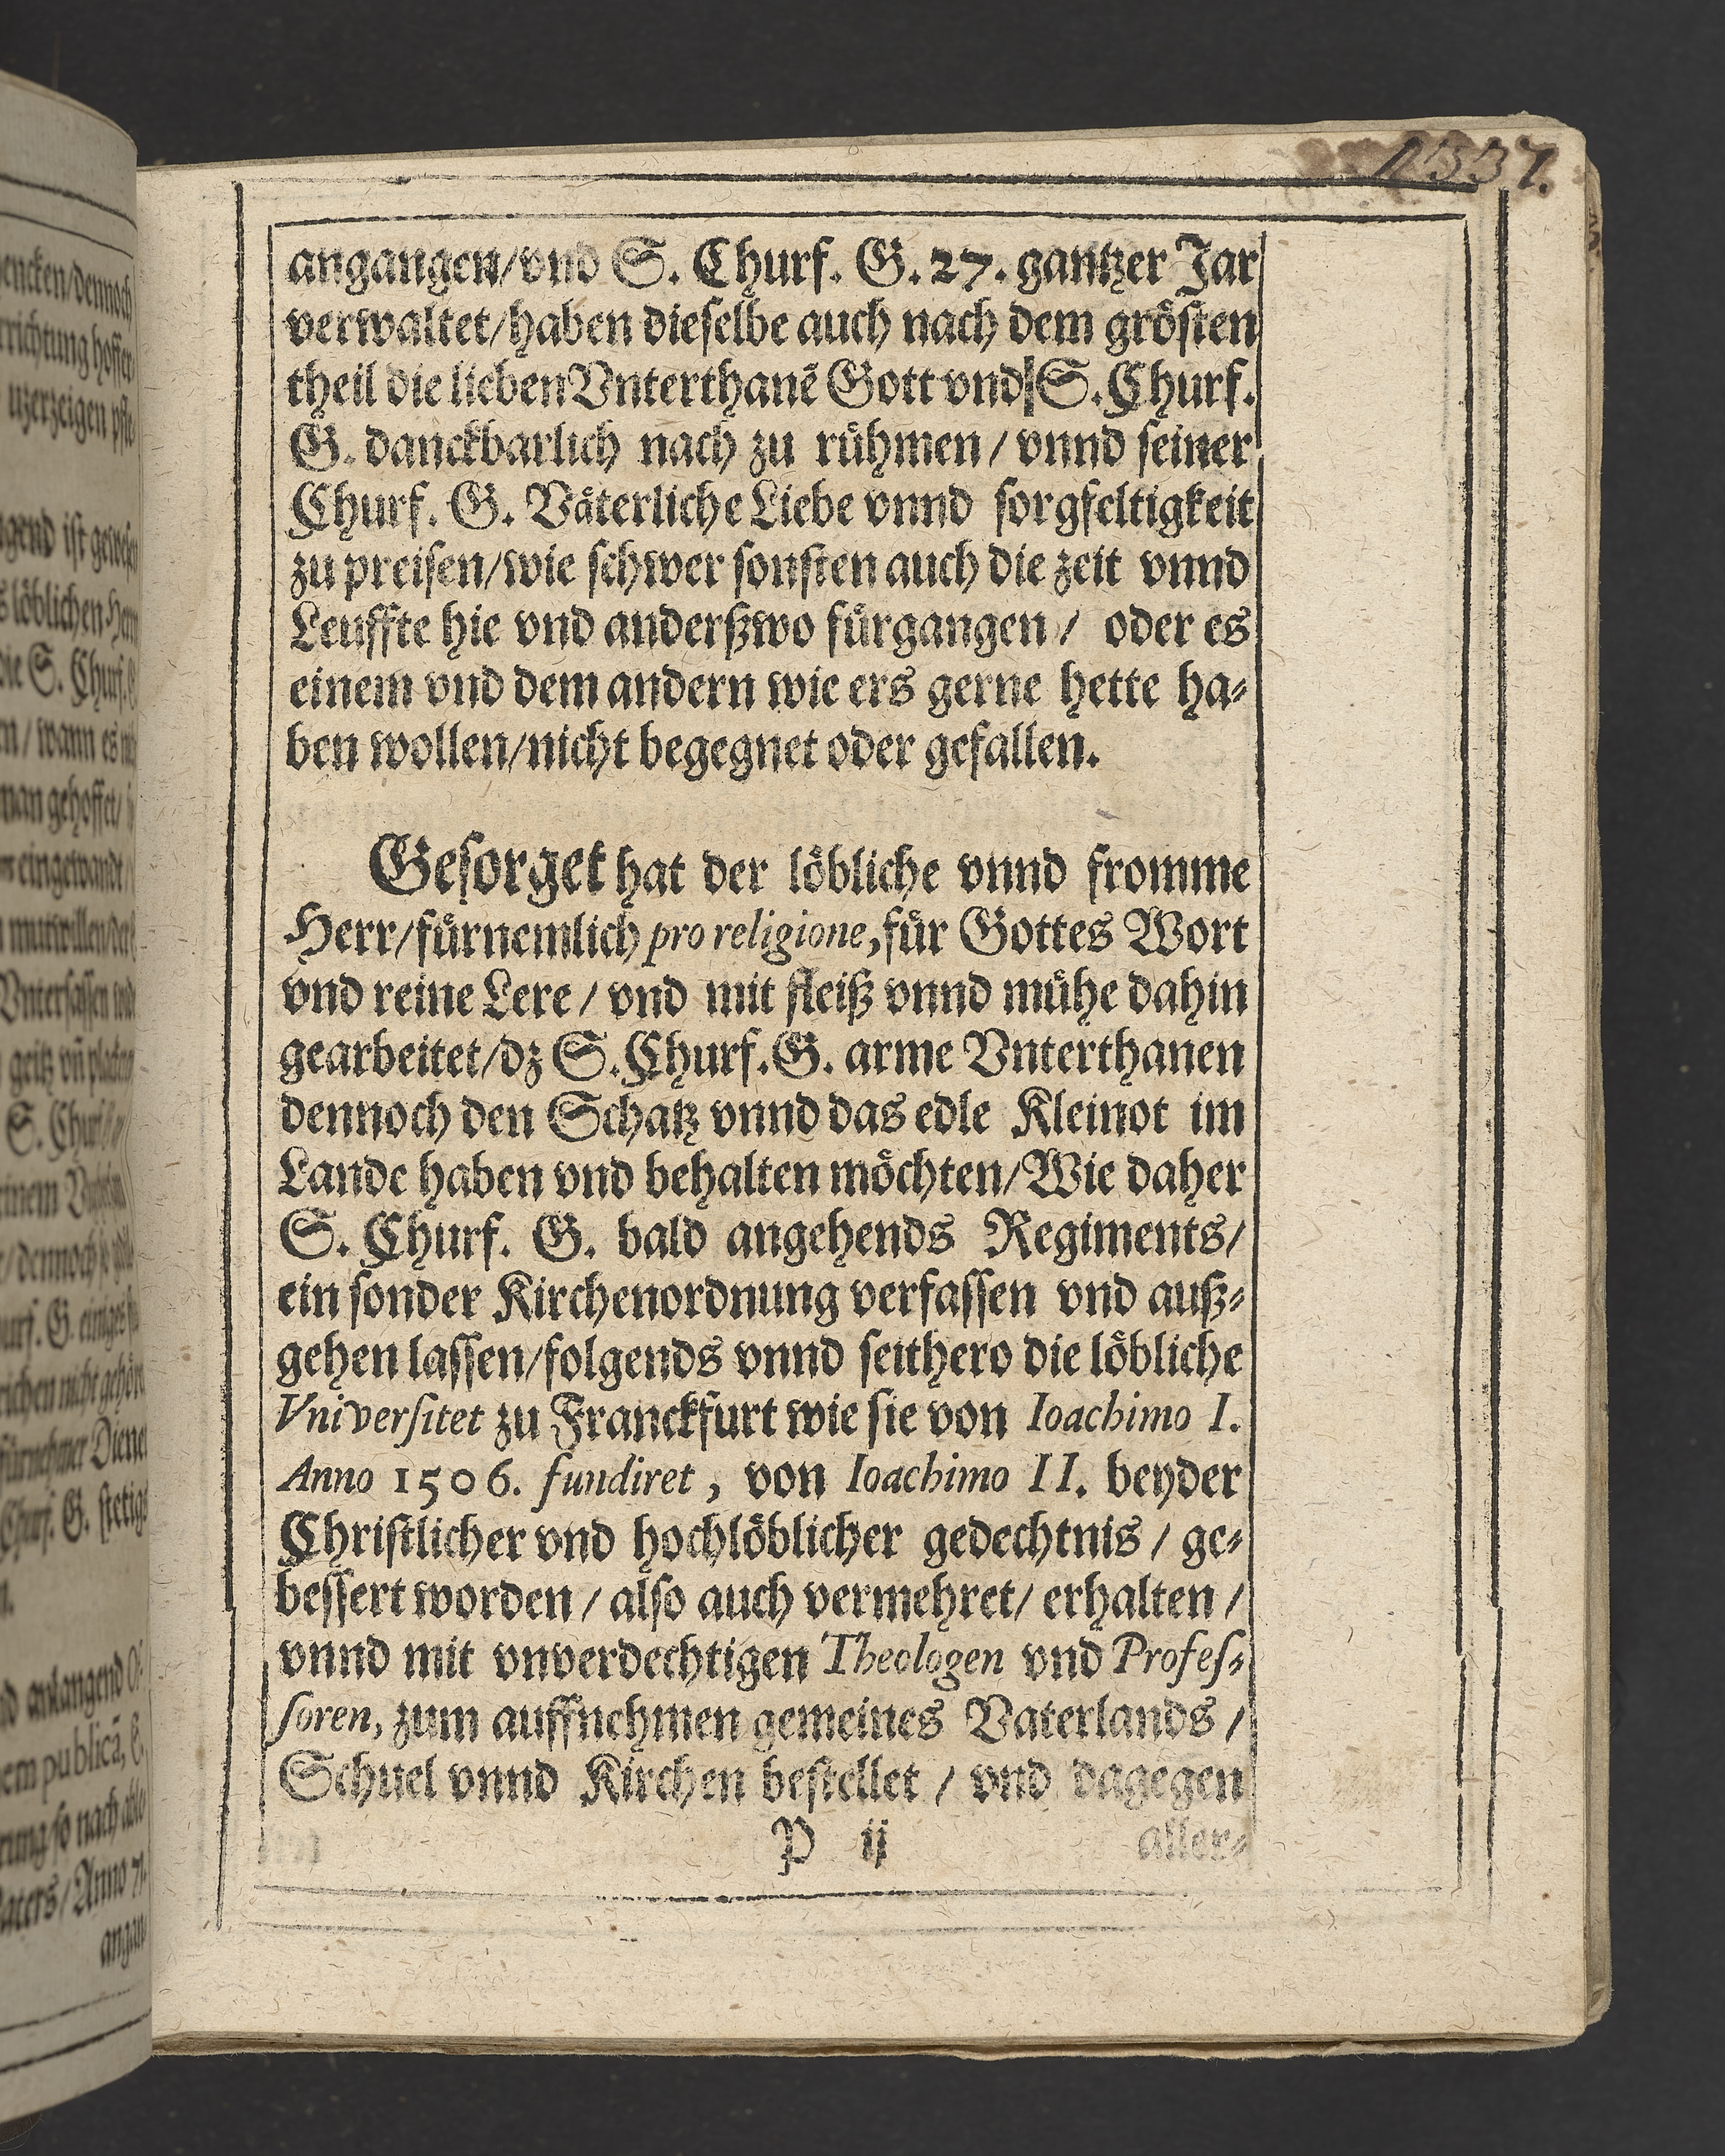 angangen/vnd S. Churf. G. 27. gantzer Jar
verwaltet/haben dieselbe auch nach dem grösten
theil die lieben Vnterthanẽ Gott vnd S. Churf.
G. danckbarlich nach zu rühmen / vnnd seiner
Churf. G. Väterliche Liebe vnnd sorgfeltigkeit
zu preisen/wie schwer sonsten auch die zeit vnnd
Leuffte hie vnd anderßwo fürgangen / oder es
einem vnd dem andern wie ers gerne hette ha-
ben wollen/nicht begegnet oder gefallen.
Gesorget hat der löbliche vnnd fromme
Herr/fürnemlich pro religione, für Gottes Wort
vnd reine Lere / vnd mit fleiß vnnd mühe dahin
gearbeitet/dz S. Churf. G. arme Vnterthanen
dennoch den Schatz vnnd das edle Kleinot im
Lande haben vnd behalten möchten/Wie daher
S. Churf. G. bald angehends Regiments/
ein sonder Kirchenordnung verfassen vnd auß-
gehen lassen/folgends vnnd seithero die löbliche
Vniversitet zu Franckfurt wie sie von Ioachimo I.
Anno 1506. fundiret, von Ioachimo II. beyder
Christlicher vnd hochlöblicher gedechtnis / ge-
bessert worden / also auch vermehret/ erhalten /
vnnd mit vnverdechtigen Theologen vnd Profes-
soren, zum auffnehmen gemeines Vaterlands /
Schuel vnnd Kirchen bestellet / vnd dagegen
P ij aller-